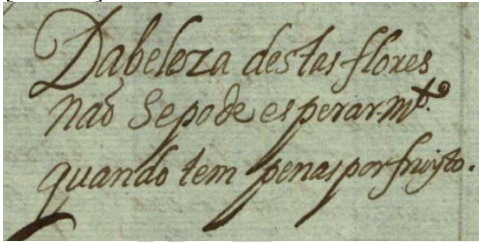 Da beleza destas flores
não se pode esperar m.to
quando tem penas por fruyto.